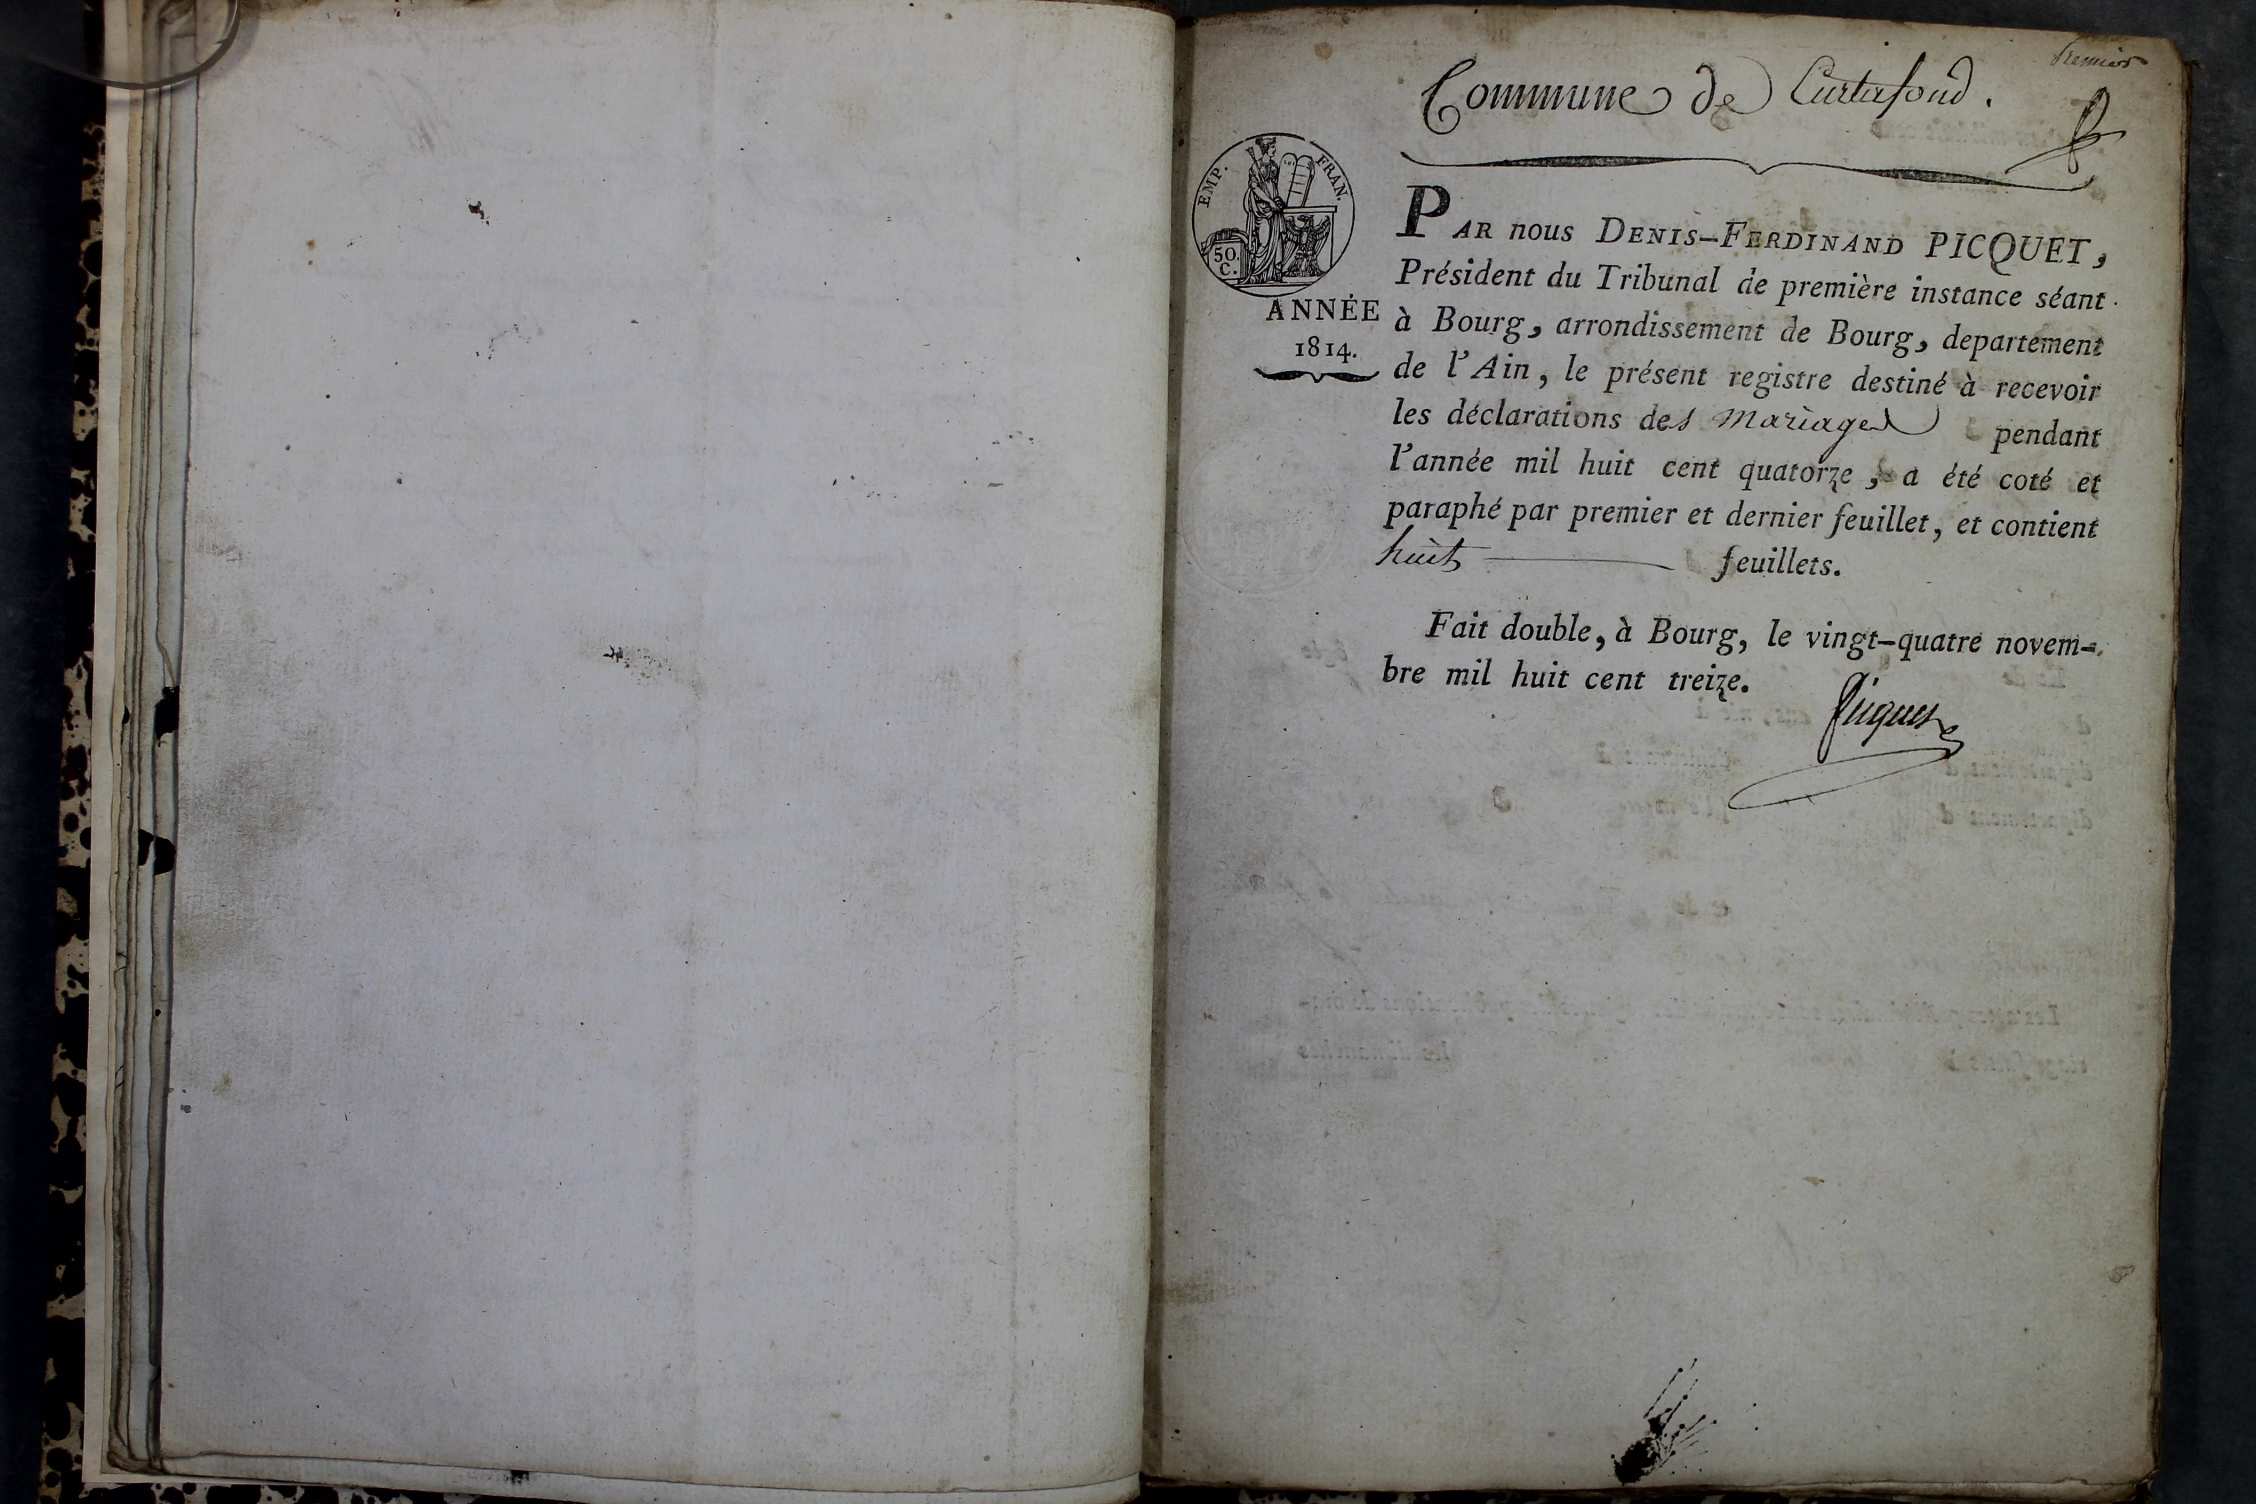 Premier
Commune de Curtafond.
EMP. FRAN.
LOI
50.
C.
ANNÉE
1814.
PAR nous DENIS-FERDINAND PICQUET,
Président du Tribunal de première instance séant
à Bourg, arrondissement de Bourg, departement
de l'Ain, le présent registre destiné à recevoir
les déclarations des Mariages pendant
l'année mil huit cent quatorze, a été coté et
paraphé par premier et dernier feuillet, et contient
huit feuillets.
Fait double, à Bourg, le vingt-quatre novem-
bre mil huit cent treize.
Picquet